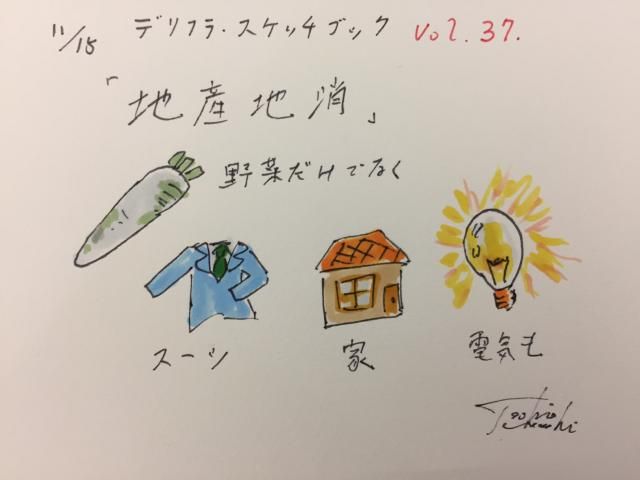 11/15 デリフラ・スケッチブック vol.37.
「地産地消」
野菜だけでなく
スーツ
家
電気も